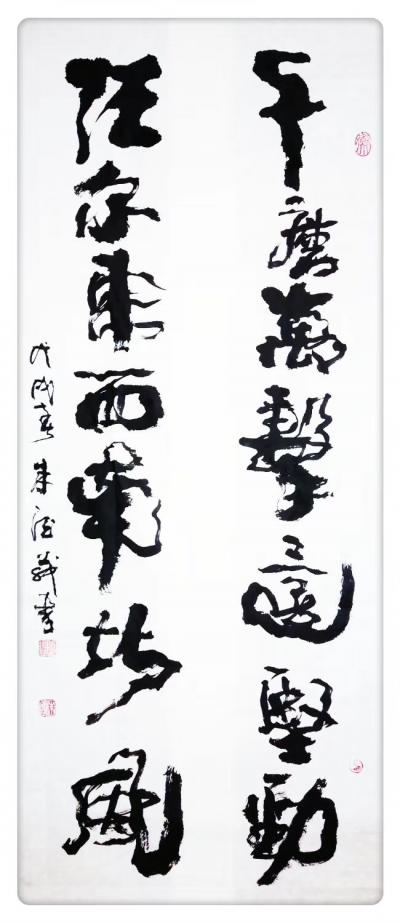 千磨萬擊還堅勁
任尔東西南北風
戊戌春朱德義書